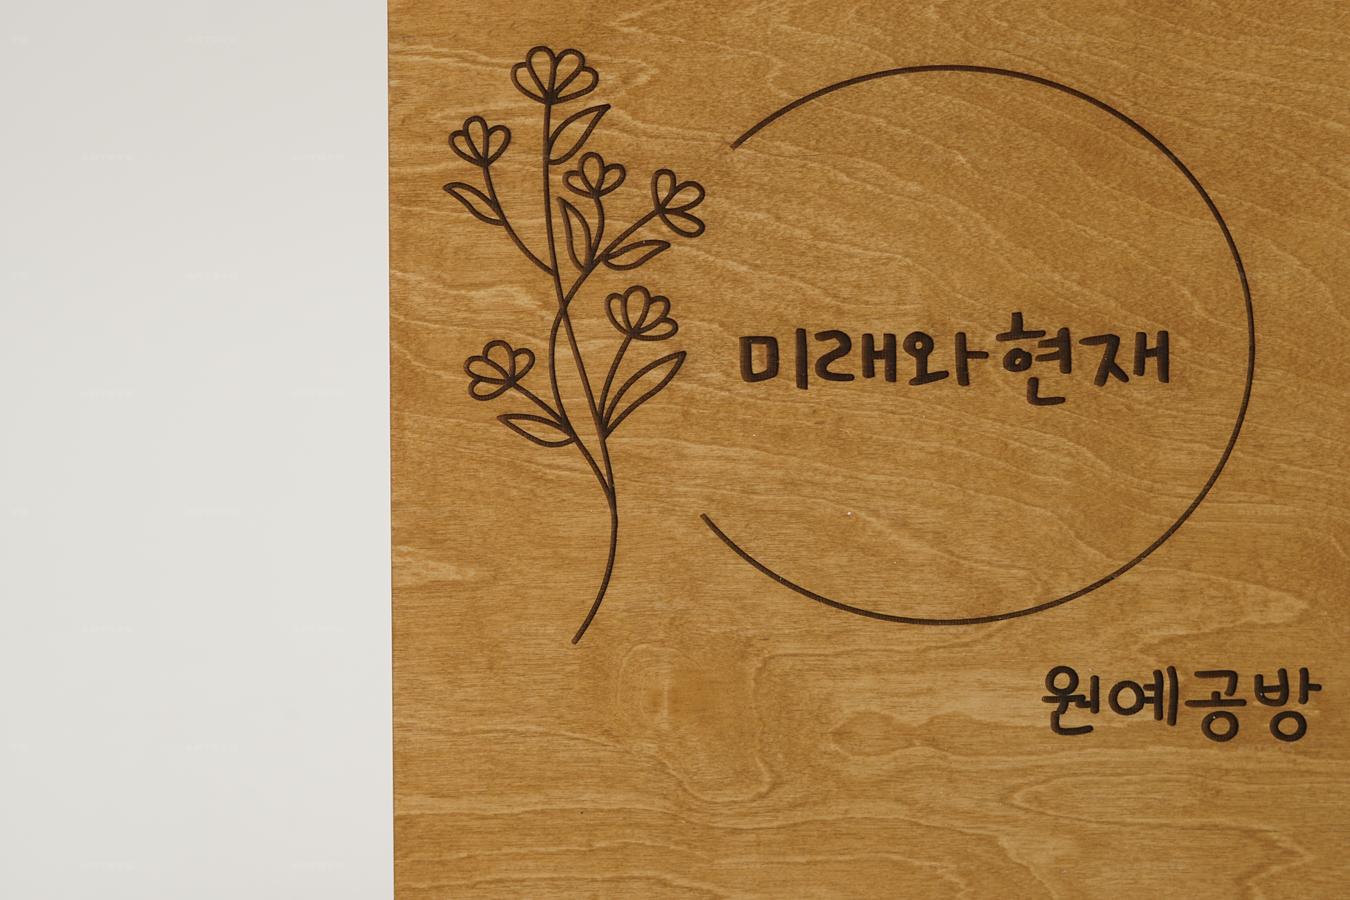 미래와현재
원예공방